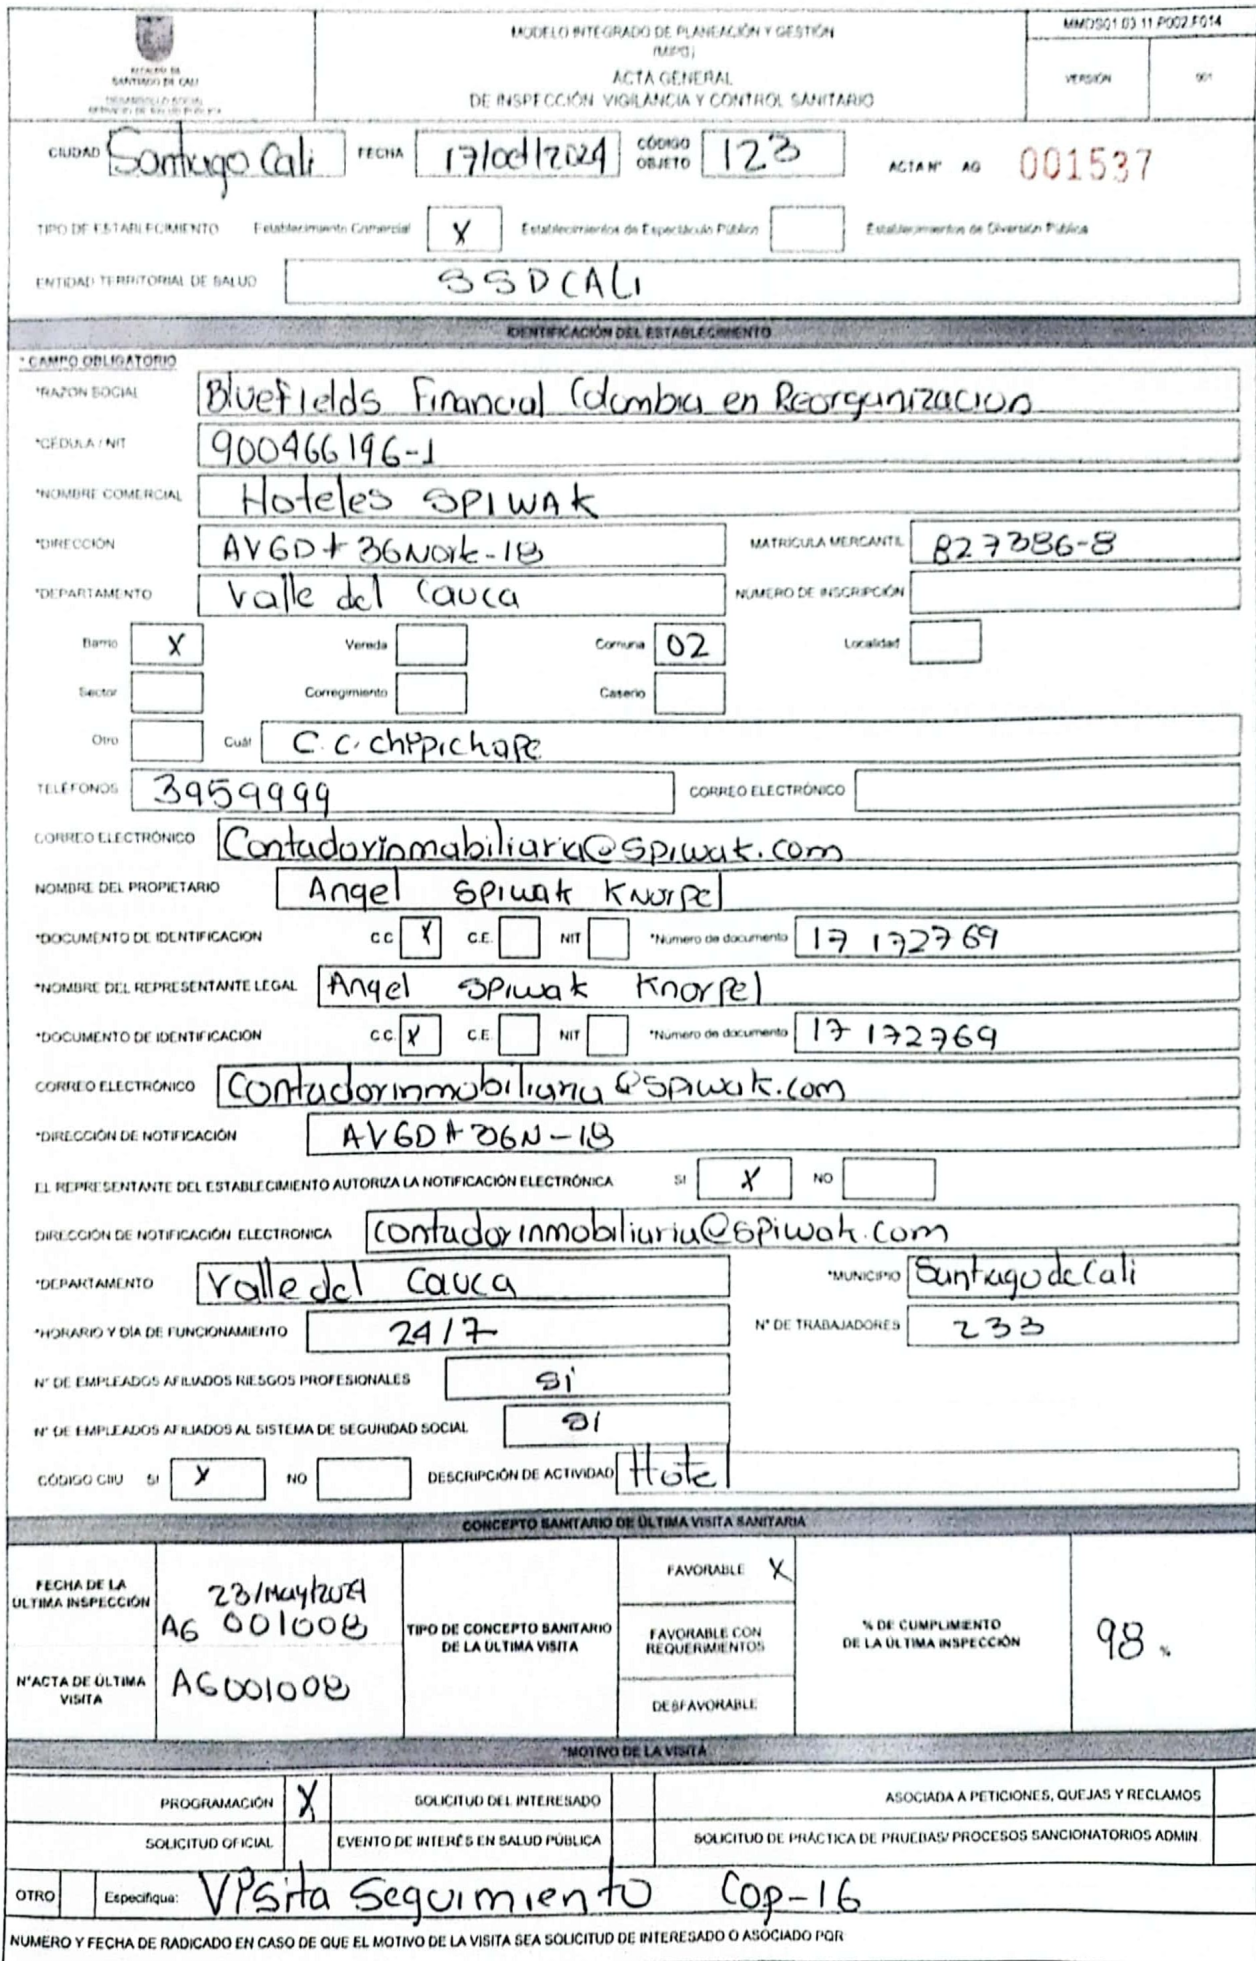 ALCALDÍA DE
SANTIAGO DE CALI
DESARROLLO SOCIAL
SERVICIO DE SALUD PÚBLICA
MODELO INTEGRADO DE PLANEACIÓN Y GESTIÓN
(MIPG)
ACTA GENERAL
DE INSPECCIÓN VIGILANCIA Y CONTROL SANITARIO
MMDS01.03.11.P002.F014
VERSIÓN 001
CIUDAD Santiago Cali FECHA 17/oct/2024 CÓDIGO OBJETO 123 ACTA N° AG 001537
TIPO DE ESTABLECIMIENTO Establecimiento Comercial X Establecimientos de Espectáculo Público Establecimientos de Diversión Pública
ENTIDAD TERRITORIAL DE SALUD SSDCALI
IDENTIFICACIÓN DEL ESTABLECIMIENTO
* CAMPO OBLIGATORIO
*RAZON SOCIAL Bluefields Financial Colombia en Reorganizacion
*CÉDULA / NIT 900466196-1
*NOMBRE COMERCIAL Hoteles SPIWAK
*DIRECCIÓN AV6D # 36Norte-18 MATRICULA MERCANTIL 827386-8
*DEPARTAMENTO Valle del Cauca NUMERO DE INSCRIPCIÓN
Barrio X Vereda Comuna 02 Localidad
Sector Corregimiento Caserio
Otro Cuál C.C. chipichape
TELÉFONOS 3959999 CORREO ELECTRÓNICO
CORREO ELECTRÓNICO Contadorinmobiliaria@spiwak.com
NOMBRE DEL PROPIETARIO Angel Spiwak Knorpel
*DOCUMENTO DE IDENTIFICACION C.C X C.E. NIT *Número de documento 17 172769
*NOMBRE DEL REPRESENTANTE LEGAL Angel Spiwak Knorpel
*DOCUMENTO DE IDENTIFICACION C.C. X C.E. NIT *Número de documento 17 172769
CORREO ELECTRÓNICO Contadorinmobiliaria@spiwak.com
*DIRECCIÓN DE NOTIFICACIÓN AV6D # 36N-18
EL REPRESENTANTE DEL ESTABLECIMIENTO AUTORIZA LA NOTIFICACIÓN ELECTRÓNICA SI X NO
DIRECCIÓN DE NOTIFICACIÓN ELECTRONICA contadorinmobiliaria@spiwak.com
*DEPARTAMENTO Valle del Cauca *MUNICIPIO Santiago de Cali
*HORARIO Y DÍA DE FUNCIONAMIENTO 24/7 N° DE TRABAJADORES 233
N° DE EMPLEADOS AFILIADOS RIESGOS PROFESIONALES si
N° DE EMPLEADOS AFILIADOS AL SISTEMA DE SEGURIDAD SOCIAL si
CÓDIGO CIIU SI X NO DESCRIPCIÓN DE ACTIVIDAD Hotel
CONCEPTO SANITARIO DE ÚLTIMA VISITA SANITARIA
FECHA DE LA ÚLTIMA INSPECCIÓN 23/May/2024
AG 001008
N°ACTA DE ÚLTIMA VISITA AG001008
TIPO DE CONCEPTO SANITARIO DE LA ÚLTIMA VISITA
FAVORABLE X
FAVORABLE CON REQUERIMIENTOS
DESFAVORABLE
% DE CUMPLIMIENTO DE LA ÚLTIMA INSPECCIÓN 98 %
*MOTIVO DE LA VISITA
PROGRAMACIÓN X SOLICITUD DEL INTERESADO ASOCIADA A PETICIONES, QUEJAS Y RECLAMOS
SOLICITUD OFICIAL EVENTO DE INTERÉS EN SALUD PÚBLICA SOLICITUD DE PRÁCTICA DE PRUEBAS/ PROCESOS SANCIONATORIOS ADMIN
OTRO Especifique: Visita Seguimiento Cop-16
NUMERO Y FECHA DE RADICADO EN CASO DE QUE EL MOTIVO DE LA VISITA SEA SOLICITUD DE INTERESADO O ASOCIADO POR